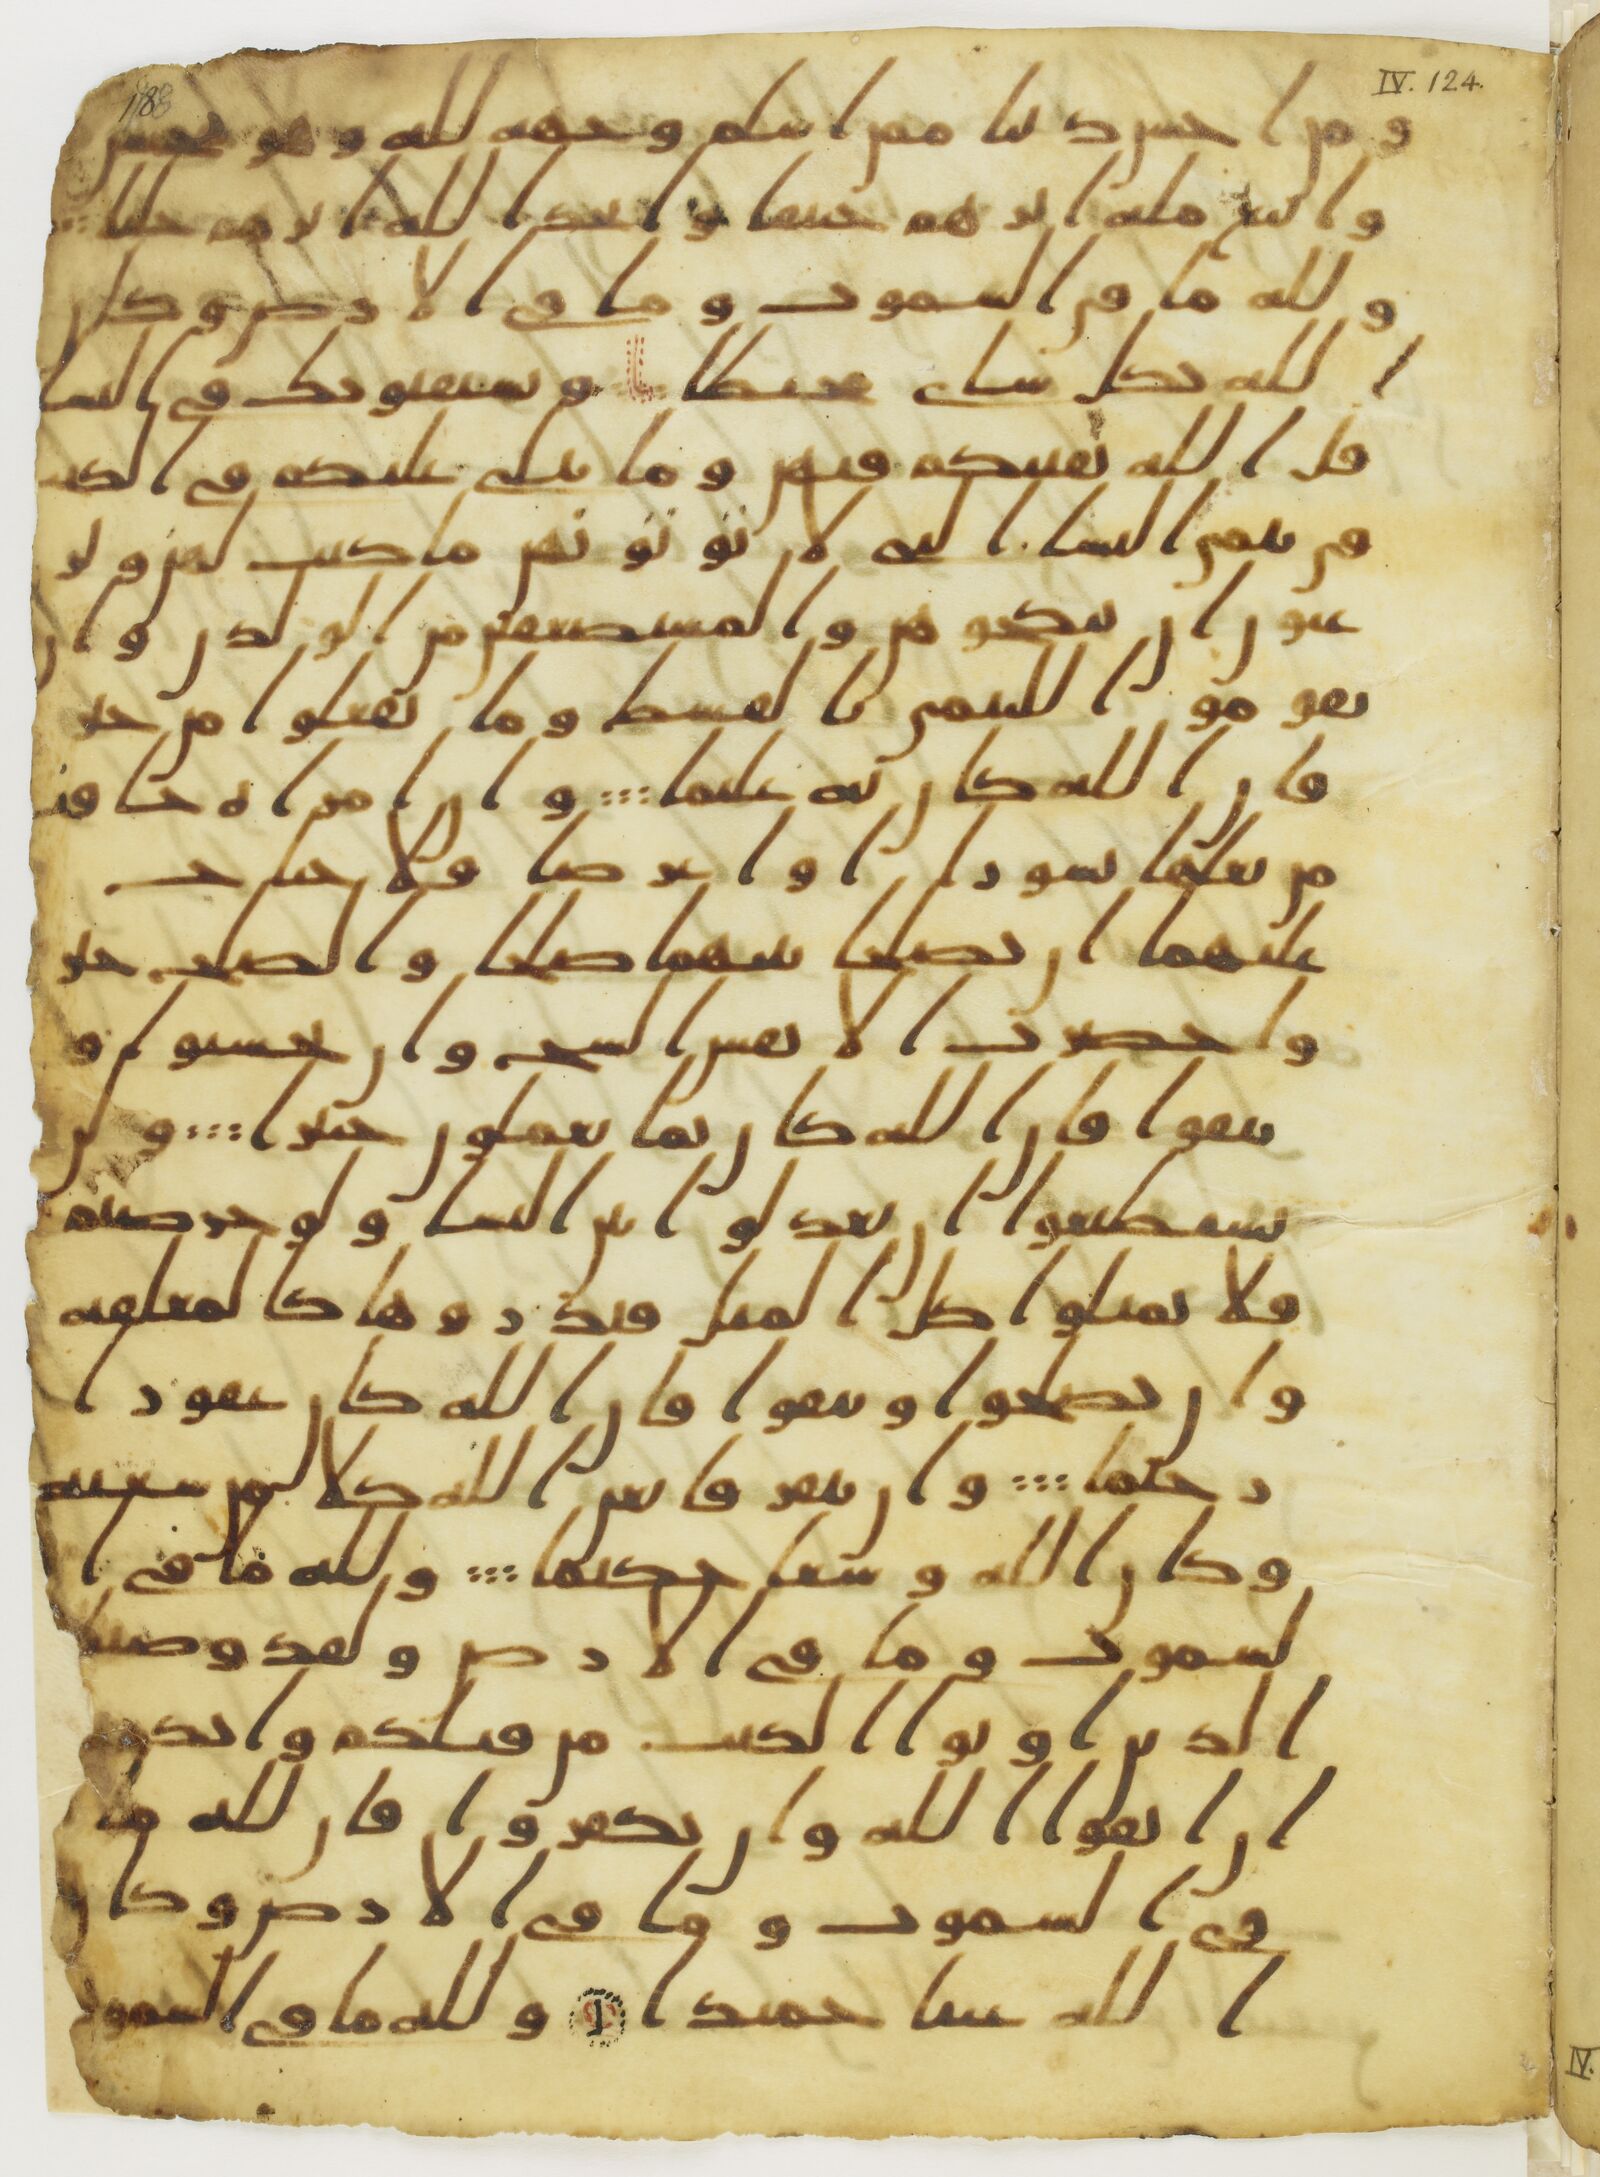 IV. 124.
188
ومن احسن دينا ممن اسلم وجهه لله وهو محسن
واتبع مله ابرهيم حنيفا واتخذ الله ابرهيم خليلا
ولله ما في السموت وما في الارض وكان
الله بكل شي محيطا ويستفتونك في النسا
قل الله يفتيكم فيهن وما يتلى عليكم في الكتب
في يتمى النسا التي لا تؤتونهن ما كتب لهن وتر
غبون ان تنكحوهن والمستضعفين من الولدن وان
تقوموا لليتمى بالقسط وما تفعلوا من خير
فان الله كان به عليما وان امراه خافت
من بعلها نشوزا او اعرضا فلا جنح
عليهما ان يصلحا بينهما صلحا والصلح خير
واحضرت الانفس الشح وان تحسنوا و
تتقوا فان الله كان بما تعملون خبيرا ولن
تستطيعوا ان تعدلوا بين النسا ولو حرصتم
فلا تميلوا كل الميل فتذروها كالمعلقه
وان تصلحوا وتتقوا فان الله كان غفورا
رحيما وان يتفرقا يغن الله كلا من سعته
وكان الله وسعا حكيما ولله ما في ا
لسموت وما في الارض ولقد وصينا
الذين اوتوا الكتب من قبلكم واياكم
ان اتقوا الله وان تكفروا فان لله ما
في السموت وما في الارض وكان
الله غنيا حميدا ولله ما في السموت
IV.